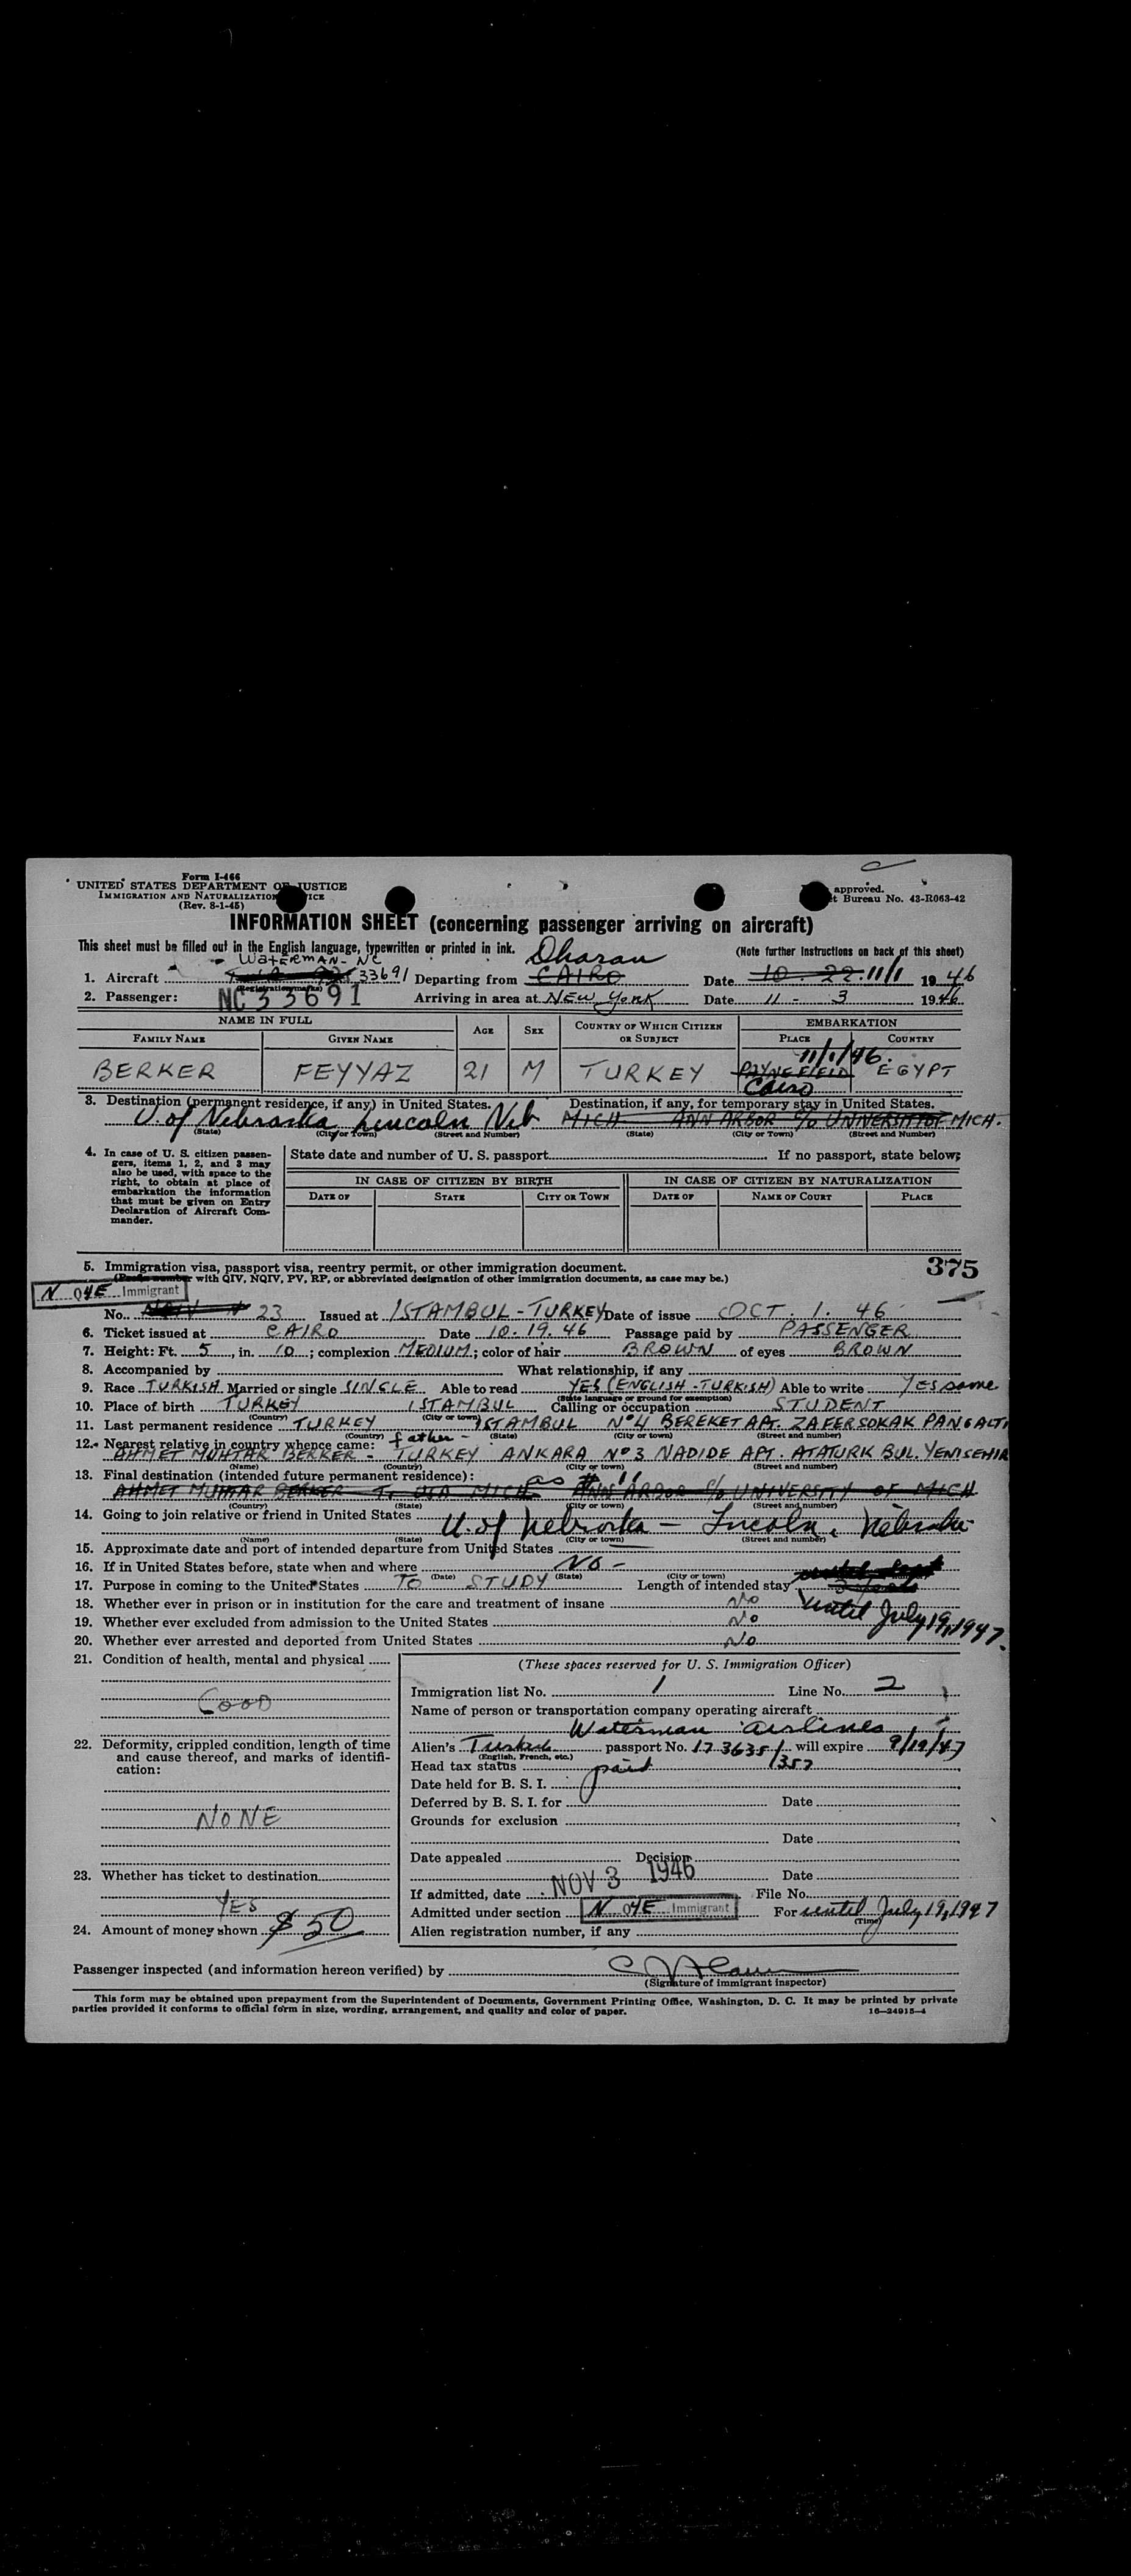 Form I-466
UNITED STATES DEPARTMENT OF JUSTICE
IMMIGRATION AND NATURALIZATION ICE
(Rev. 8-1-45)
approved.
t Bureau No. 43-R063-42
INFORMATION SHEET (concerning passenger arriving on aircraft)
This sheet must be filled out in the English language, typewritten or printed in ink.
(Note further instructions on back of this sheet)
WATERMAN - NC Dharan
1. Aircraft 33691 Departing from CAIRO Date 10 - 22 11/1 1946
(Registration marks)
2. Passenger: NC33691 Arriving in area at NEW YORK Date 11 - 3 1946
NAME IN FULL AGE SEX COUNTRY OF WHICH CITIZEN OR SUBJECT EMBARKATION
FAMILY NAME GIVEN NAME PLACE COUNTRY
11/1/46.
BERKER FEYYAZ 21 M TURKEY PAYNE FIELD EGYPT
Cairo
3. Destination (permanent residence, if any) in United States. Destination, if any, for temporary stay in United States.
U. of Nebraska, Lincoln Neb MICH ANN ARBOR c/o UNIVERSITY OF MICH.
(State) (City or Town) (Street and Number) (State) (City or Town) (Street and Number)
4. In case of U. S. citizen passengers, items 1, 2, and 3 may also be used, with space to the right, to obtain at place of embarkation the information that must be given on Entry Declaration of Aircraft Commander.
State date and number of U. S. passport If no passport, state below:
IN CASE OF CITIZEN BY BIRTH IN CASE OF CITIZEN BY NATURALIZATION
DATE OF STATE CITY OR TOWN DATE OF NAME OF COURT PLACE
5. Immigration visa, passport visa, reentry permit, or other immigration document. 375
(Prefix number with QIV, NQIV, PV, RP, or abbreviated designation of other immigration documents, as case may be.)
N 04E Immigrant
No. 23 Issued at ISTAMBUL - TURKEY Date of issue OCT. 1. 46
6. Ticket issued at CAIRO Date 10.19.46 Passage paid by PASSENGER
7. Height: Ft. 5, in. 10; complexion MEDIUM; color of hair BROWN of eyes BROWN
8. Accompanied by What relationship, if any
9. Race TURKISH Married or single SINGLE Able to read YES (ENGLISH - TURKISH) Able to write YES same
(State language or ground for exemption)
10. Place of birth TURKEY ISTAMBUL Calling or occupation STUDENT
(Country) (City or town)
11. Last permanent residence TURKEY ISTAMBUL No 4 BEREKET APT. ZAFER SOKAK PANGALTI
(Country) (State) (City or town) (Street and number)
12. Nearest relative in country whence came: father -
AHMET MUHTAR BERKER - TURKEY ANKARA No 3 NADIDE APT. ATATURK BUL. YENISEHIR
(Name) (Country) (City or town) (Street and number)
13. Final destination (intended future permanent residence): as # 11
AHMET MUHTAR BERKER MICH ANN ARBOR c/o UNIVERSITY OF MICH
(Country) (State) (City or town) (Street and number)
14. Going to join relative or friend in United States
U. of Nebraska - Lincoln, Nebraska
(Name) (State) (City or town) (Street and number)
15. Approximate date and port of intended departure from United States
16. If in United States before, state when and where NO -
(Date) (State) (City or town)
17. Purpose in coming to the United States TO STUDY Length of intended stay
until July 19, 1947.
18. Whether ever in prison or in institution for the care and treatment of insane No
19. Whether ever excluded from admission to the United States No
20. Whether ever arrested and deported from United States No
21. Condition of health, mental and physical
GOOD
22. Deformity, crippled condition, length of time and cause thereof, and marks of identification:
NONE
23. Whether has ticket to destination
YES
24. Amount of money shown $50
(These spaces reserved for U. S. Immigration Officer)
Immigration list No. 1 Line No. 2
Name of person or transportation company operating aircraft
Waterman airlines
Alien's Turkish passport No. 173635/357 will expire 9/19/47
(English, French, etc.)
Head tax status paid
Date held for B. S. I.
Deferred by B. S. I. for Date
Grounds for exclusion
Date
Date appealed Decision
Date
If admitted, date NOV 3 1946 File No.
Admitted under section N 04E Immigrant For until July 19, 1947
(Time)
Alien registration number, if any
Passenger inspected (and information hereon verified) by
(Signature of immigrant inspector)
This form may be obtained upon prepayment from the Superintendent of Documents, Government Printing Office, Washington, D. C. It may be printed by private
parties provided it conforms to official form in size, wording, arrangement, and quality and color of paper.
16-24915-4